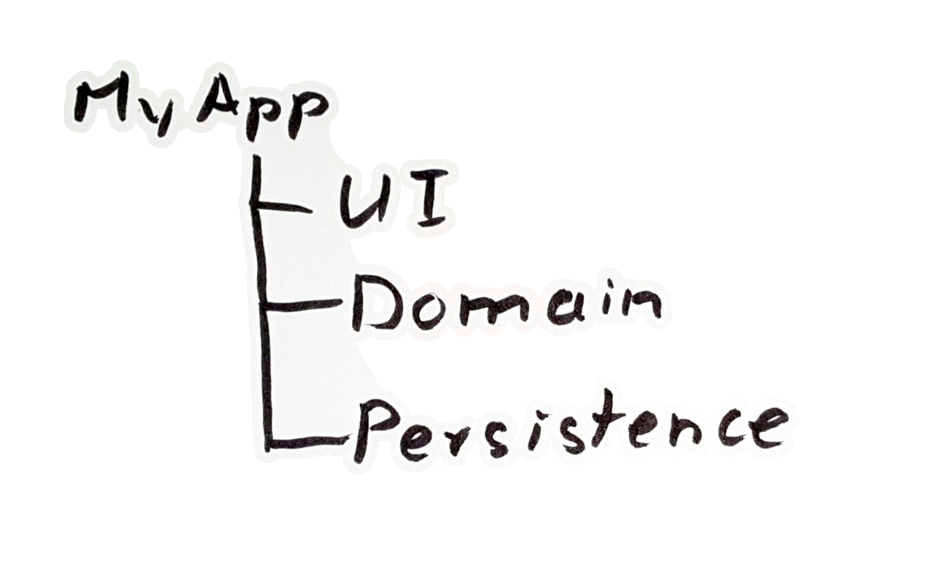 MyApp
UI
Domain
Persistence